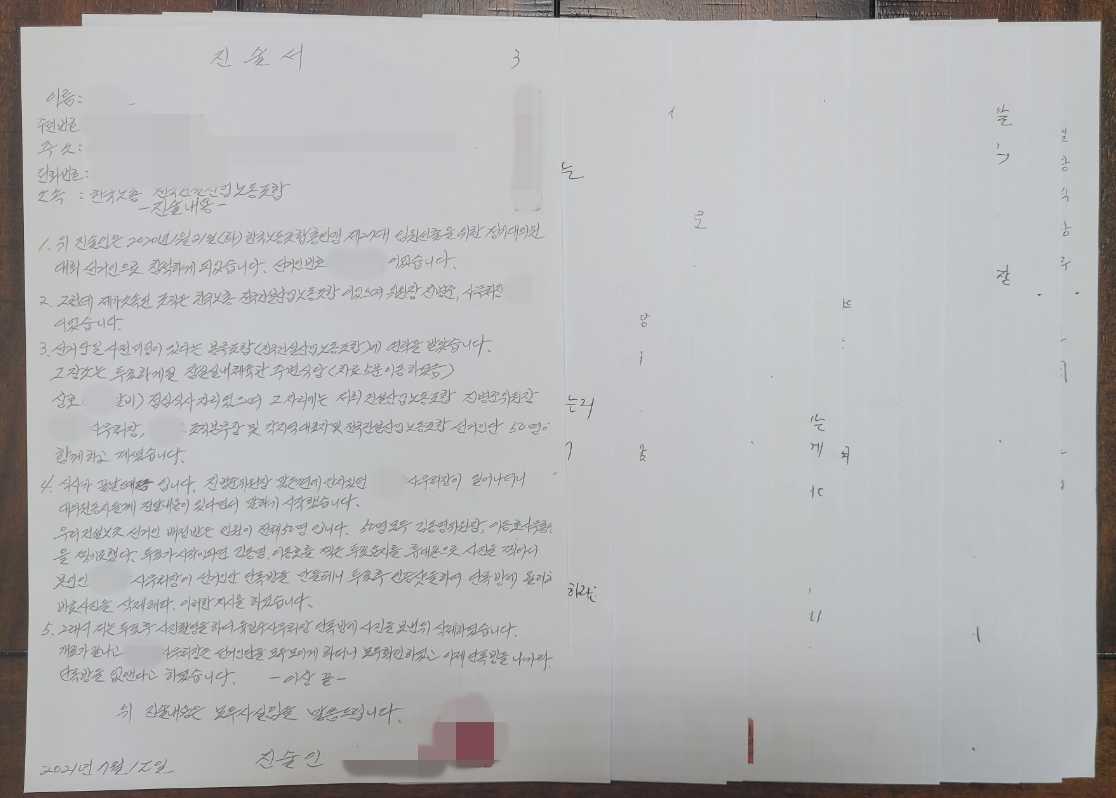 진술서 3
이름:
주민번호
주소:
전화번호:
소속 : 한국노총 전국건설산업노동조합
-진술내용-
1. 위 진술인은 2020년 1월 21일(화) 한국노동조합총연맹 제27대 임원선출을 위한 정기대의원
대회 선거인으로 참석하게 되었습니다. 선거인번호 이었습니다.
2. 그런데 제가 소속된 조직은 한국노총 전국건설산업노동조합 이었으며 위원장 진병준, 사무처장
이었습니다.
3. 선거당일 사전미팅이 있다는 본조합(전국건설산업노동조합)에 연락을 받았습니다.
그 장소는 투표하게될 잠실실내체육관 주변식당(차로 5분이동하였음)
상호 갈비) 점심식사 자리였으며 그 자리에는 저희 건설산업노동조합 진병준위원장
사무처장, 조직본부장 및 각지역대표자 및 전국건설산업노동조합 선거인단 50명이
함께하고 계셨습니다.
4. 식사가 끝날때쯤 입니다. 진병준위원장 맞은편에 앉자있던 사무처장이 일어나더니
대의원동지들께 전달내용이 있다면서 말하기 시작했습니다.
우리 건설노조 선거인 배정받은 인원이 전체 50명 입니다. 50명 모두 김동명위원장, 이동호사무총장
을 찍기로했다. 투표가 시작이되면 김동명, 이동호를 찍은 투표용지를 휴대폰으로 사진을 찍어서
본인인 사무처장이 선거인단 단톡방을 만들테니 투표후 인증샷을하여 단톡방에 올리고
바로사진을 삭제해라. 이러한 지시를 하였습니다.
5. 그래서 저는 투표후 사진촬영을 하여 육길수사무처장 단톡방에 사진을 보낸뒤 삭제하였습니다.
개표가 끝나고 사무처장은 선거인단을 모두모이게 하더니 모두확인하였고 이제 단톡방을 나가라
단톡방을 없앤다고 하였습니다. -이상 끝-
위 진술내용은 모두사실임을 말씀드립니다.
2021년 1월 15일 진술인